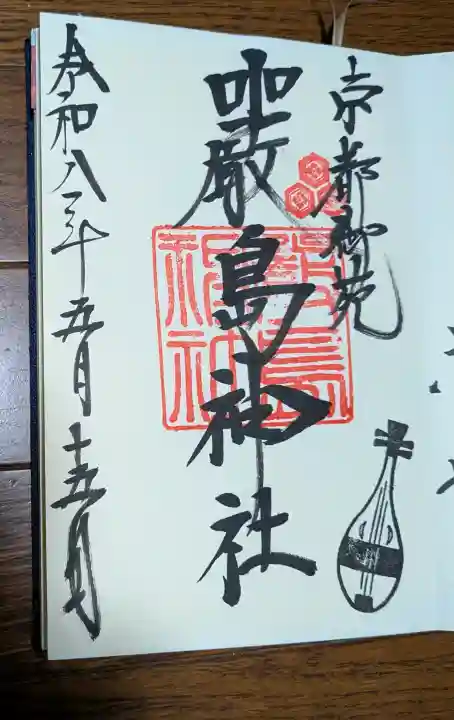 京都御苑
嚴島神社
令和八年五月十五日